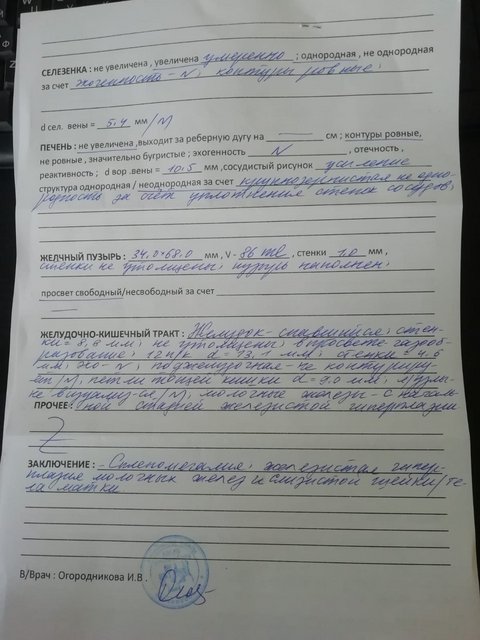 СЕЛЕЗЕНКА : не увеличена , увеличена умеренно ; однородная , не однородная
за счет эхогенность – N; контуры ровные;
d сел. вены = 5,4 мм /N
ПЕЧЕНЬ : не увеличена ,выходит за реберную дугу на — см ; контуры ровные,
не ровные , значительно бугристые ; эхогенность N , отечность ,
реактивность ; d вор .вены = 10,5 мм ,сосудистый рисунок усиление
структура однородная / неоднородная за счет крупнозернистая неодно-
родность за счет уплотнения стенок сосудов;
ЖЕЛЧНЫЙ ПУЗЫРЬ : 34,0×68,0 мм , V - 86 ml , стенки 1,0 мм ,
стенки не утолщены; пузырь наполнен;
просвет свободный/несвободный за счет
—
ЖЕЛУДОЧНО-КИШЕЧНЫЙ ТРАКТ : Желудок – спавшийся; стен-
ки = мм; не утолщены; в просвете газооб-
разование; 12п/к d = 13,1 мм; стенки = 4,5
мм; эхо – N; поджелудочная – не контуриру-
ет /N; петли тощей кишки d = 9,0 мм; л/узлы-
не /N; молочные железы – с началь-
ной стадией железистой гиперплазии
ПРОЧЕЕ :
Z
ЗАКЛЮЧЕНИЕ : – Спленомегалия; железистая гипер-
плазия молочных желез и слизистой шейки/те-
ла матки
В/Врач : Огородникова И.В .